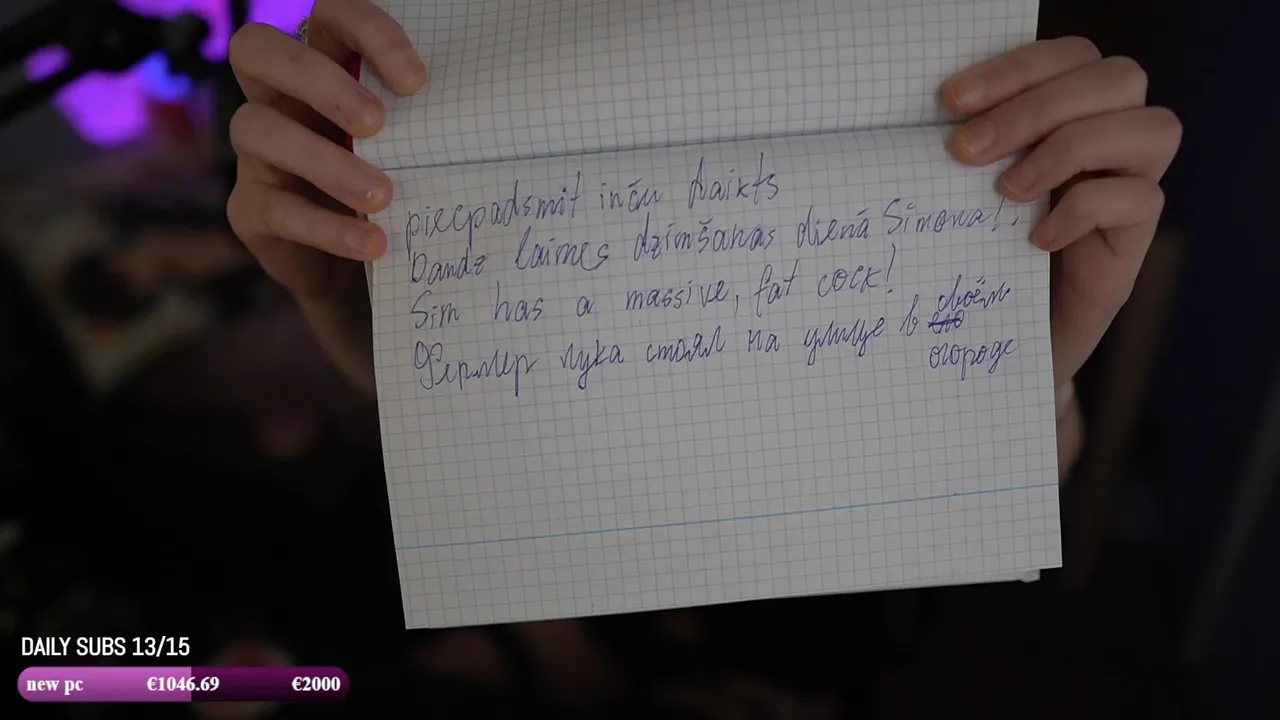 piecpadsmit inču haikts
Daudz laimes dzimšanas dienā Simona!
Sim has a massive, fat cock!
Фермер лука стоял на улице в его своём
огороде
DAILY SUBS 13/15
new pc €1046.69 €2000